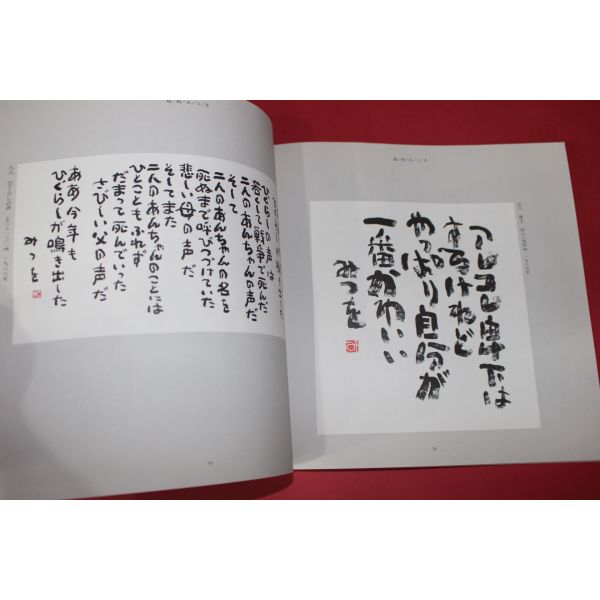 相田みつを
ひぐらしの声は
若くして戦争で死んだ
二人のあんちゃんの声だ
そして
二人のあんちゃんの名を
死ぬまで呼びつづけていた
悲しい母の声だ
そしてまた
二人のあんちゃんのことには
ひとこともふれず
だまって死んでいった
さびしい父の声だ
ああ 今年も
ひぐらしが鳴き出した
みつを
73
相田みつを
けれど
やっぱり自分が
一番かわいい
みつを
74